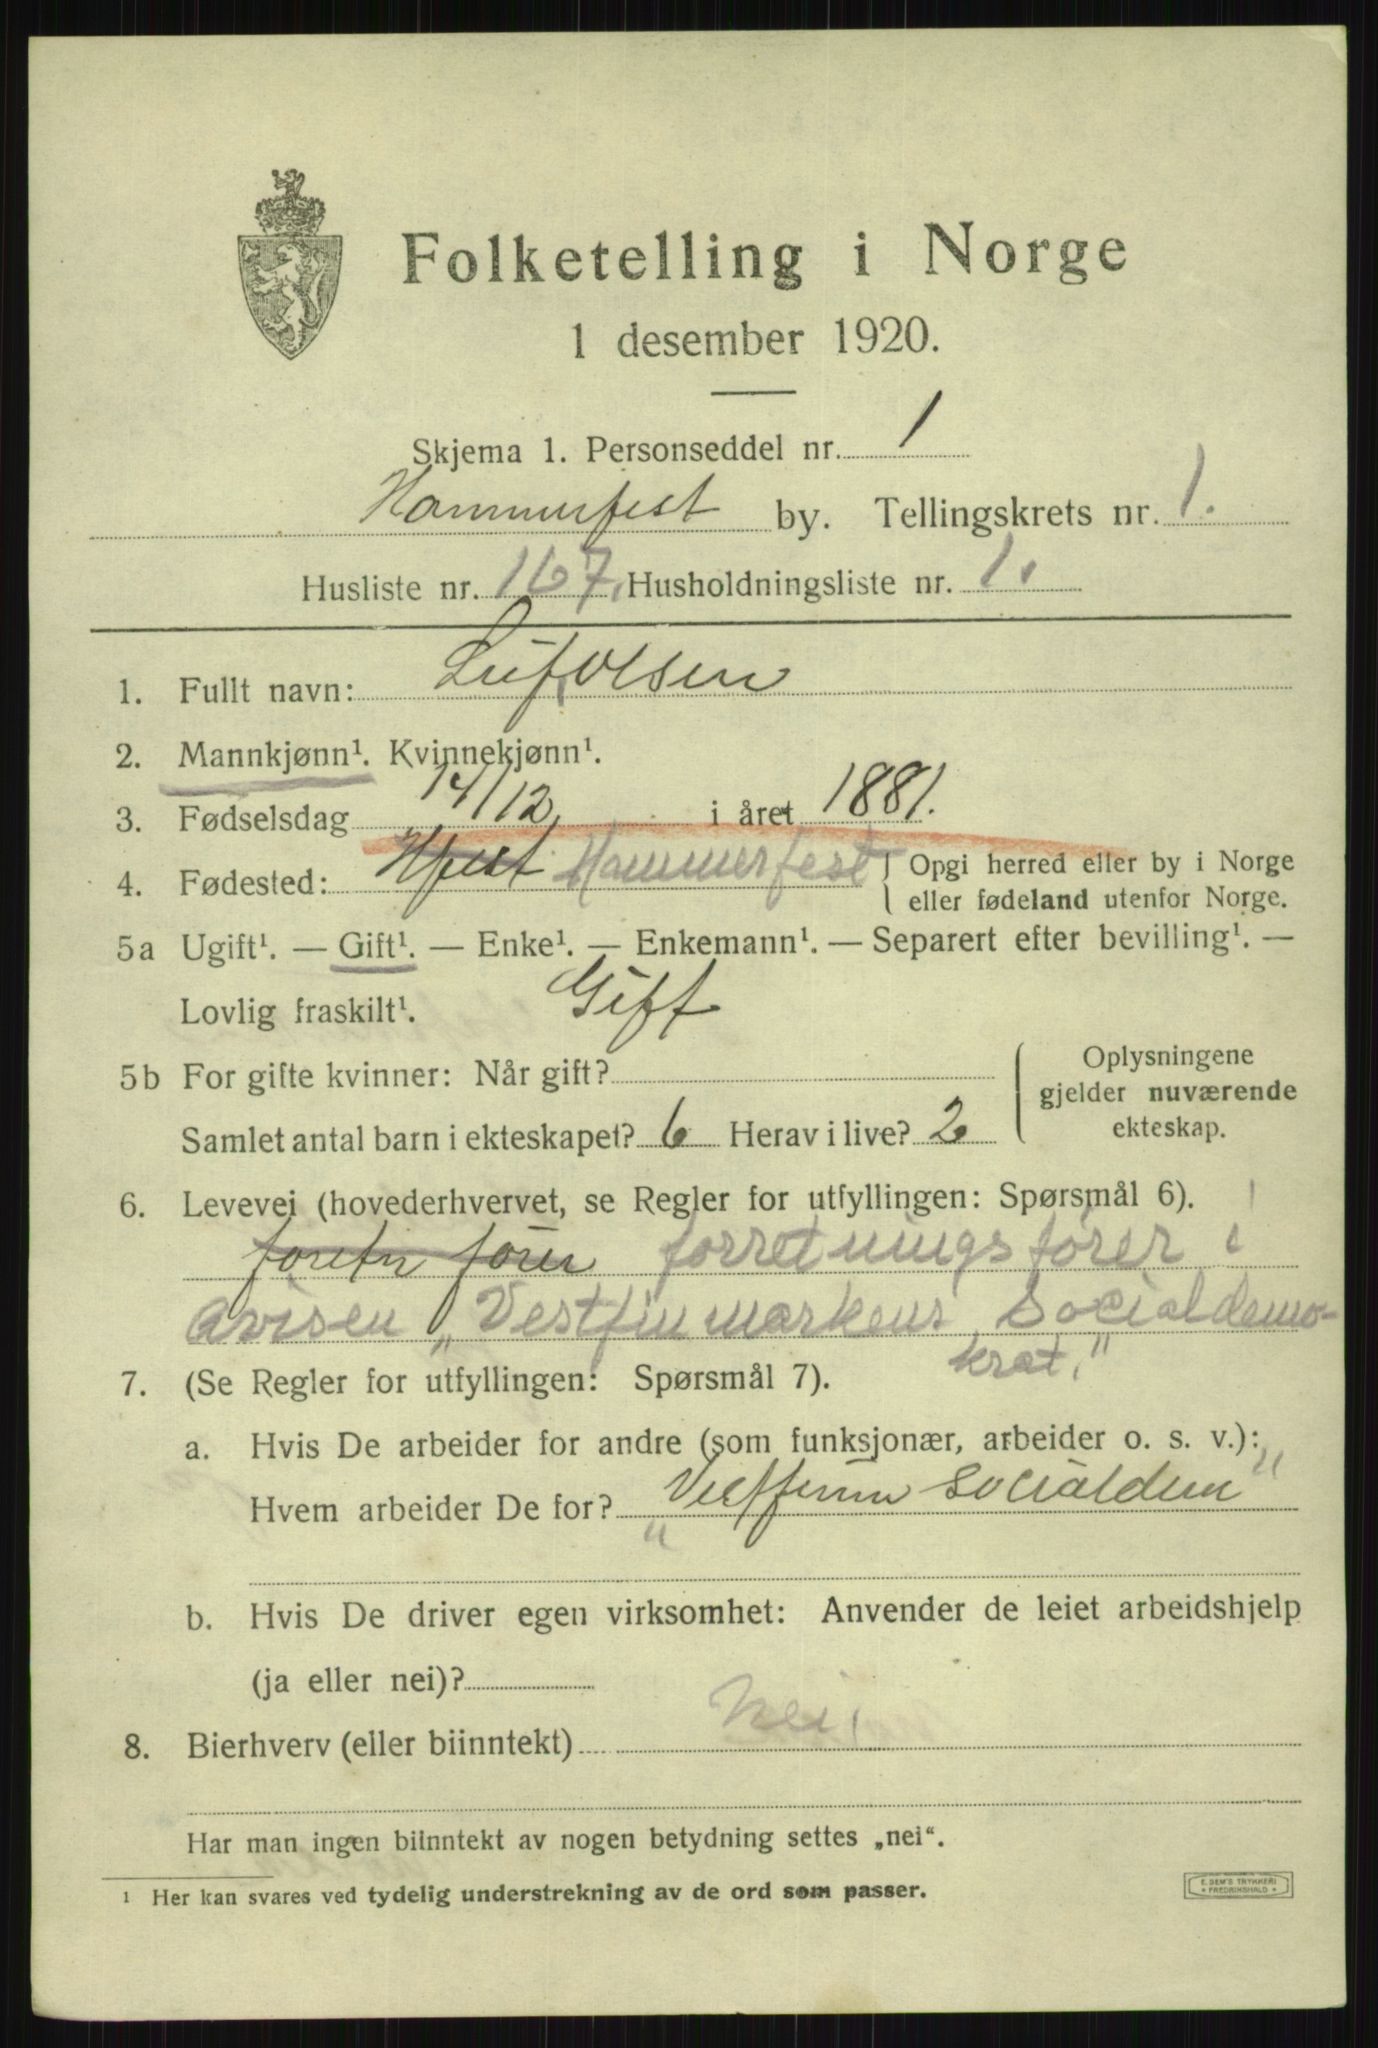 Folketelling i Norge
1 desember 1920.
Skjema 1. Personseddel nr. 1
Hammerfest by. Tellingskrets nr. 1.
Husliste nr. 167. Husholdningsliste nr. 1.
1. Fullt navn: Leif Olsen
2. Mannkjønn¹. Kvinnekjønn¹.
3. Fødselsdag 14/12 i året 1881.
4. Fødested: Hfest Hammerfest { Opgi herred eller by i Norge
eller fødeland utenfor Norge.
5a Ugift¹. — Gift¹. — Enke¹. — Enkemann¹. — Separert efter bevilling¹. —
Lovlig fraskilt¹. Gift
5b For gifte kvinner: Når gift?
Samlet antal barn i ekteskapet? 6 Herav i live? 2
Oplysningene
gjelder nuværende
ekteskap.
6. Levevei (hovederhvervet, se Regler for utfyllingen: Spørsmål 6).
foretn fører forretningsfører i
avisen „Vestfinmarkens Socialdemo-
krat."
7. (Se Regler for utfyllingen: Spørsmål 7).
a. Hvis De arbeider for andre (som funksjonær, arbeider o. s. v.):
Hvem arbeider De for? „Vestfinm Socialdem"
b. Hvis De driver egen virksomhet: Anvender de leiet arbeidshjelp
(ja eller nei)?
8. Bierhverv (eller biinntekt) Nei,
Har man ingen biinntekt av nogen betydning settes „nei“.
¹ Her kan svares ved tydelig understrekning av de ord som passer.
E. SEM'S TRYKKERI
FREDRIKSHALD